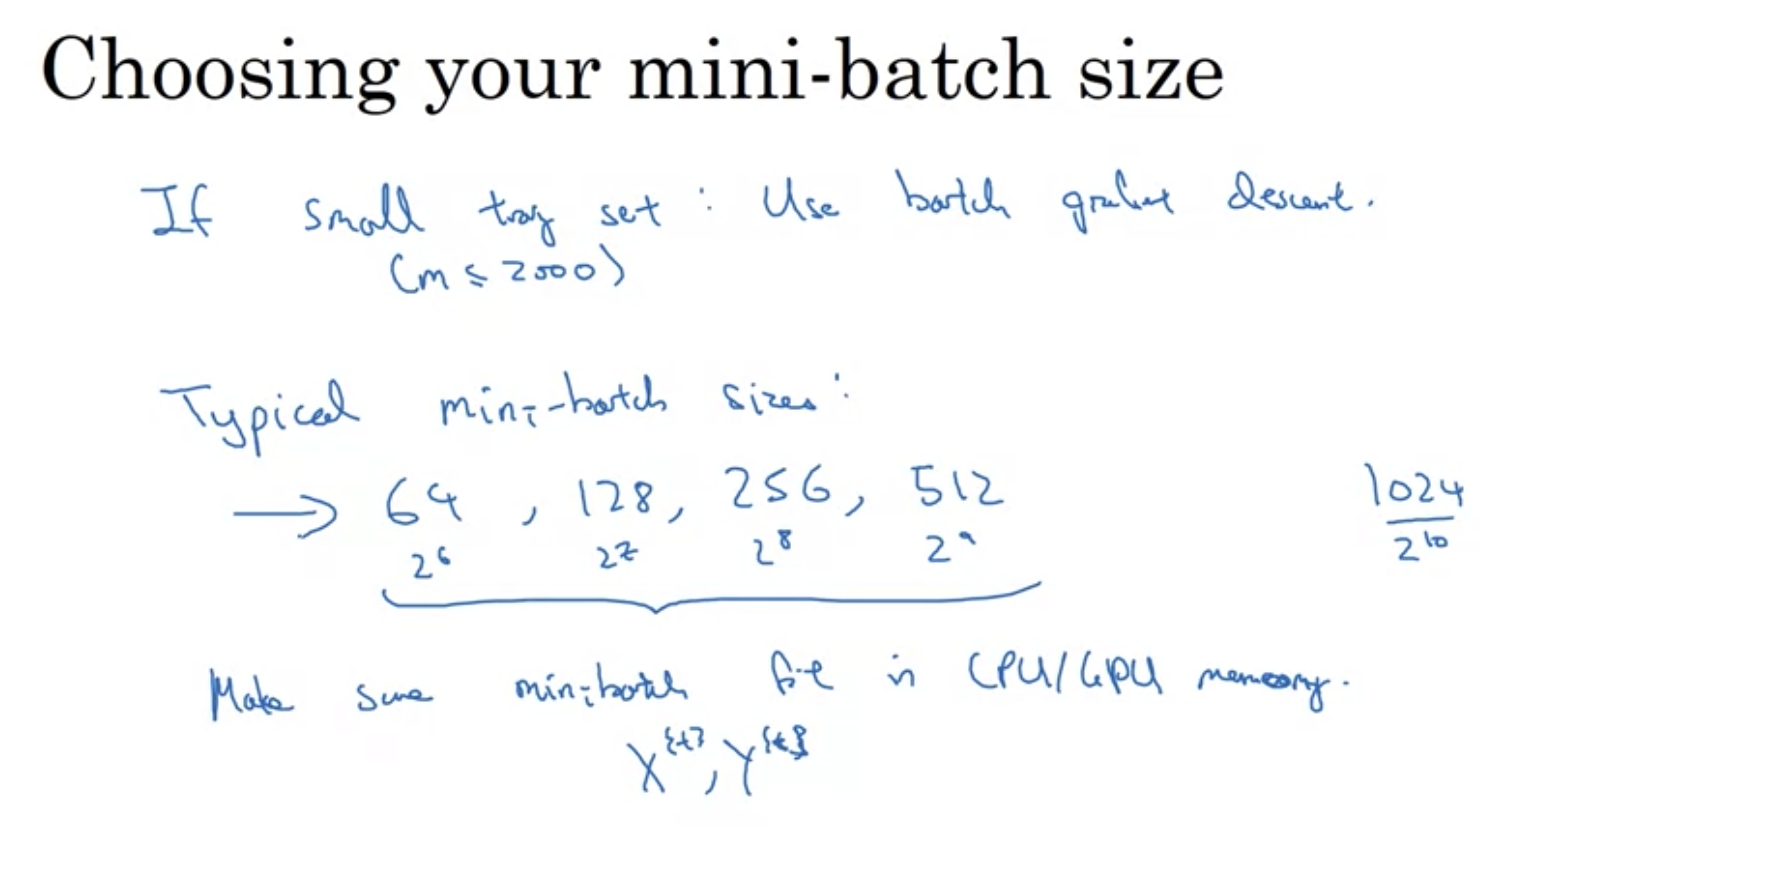 Choosing your mini-batch size
If small tray set : Use batch gradient descent.
(m ≤ 2000)
Typical mini-batch sizes:
→ 64 , 128, 256, 512 1024
2⁶ 2⁷ 2⁸ 2⁹ 2¹⁰
Make sure minibatch fit in CPU/GPU memory.
X^{t}, Y^{t}